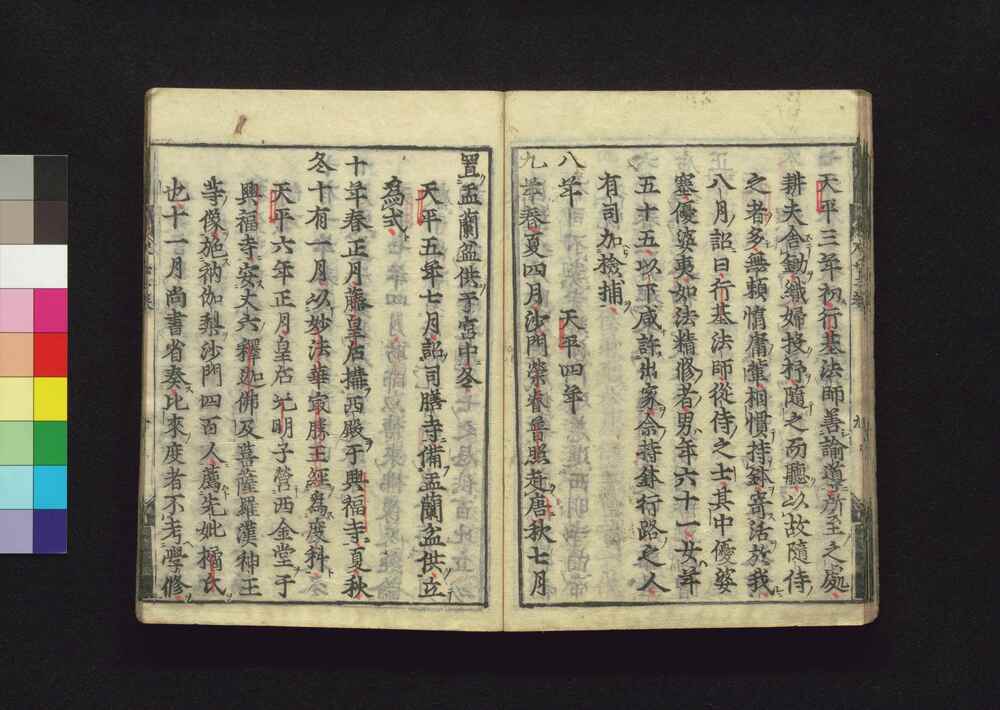 天平三年初行基法師善諭導所至之處
耕夫舍鋤織婦投杼隨之而聽以故隨侍
之者多無賴惰庸輩相慣持鉢寄活於我
八月詔曰行基法師從侍之士其中優婆
塞優婆夷如法精修者男年六十一女年
五十五以下咸許出家令持鉢行路之人
有司加撿捕
八年 天平四年
九年春夏四月沙門榮睿普照赴唐秋七月
置盂蘭盆供于宮中冬
天平五年七月詔司膳寺備盂蘭盆供立
爲式
十年春正月藤皇后搆西殿于興福寺夏秋
冬十有一月以妙法華最勝王經爲度科
天平六年正月皇后光明子營西金堂于
興福寺安丈六釋迦佛及菩薩羅漢神王
等像施衲伽梨沙門四百人薦先妣橘氏
也十一月尚書省奏比來度者不考學修